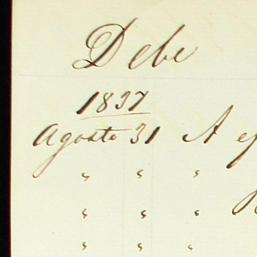 Debe
1837
Agosto 31 A
" " "
" " "
" " "